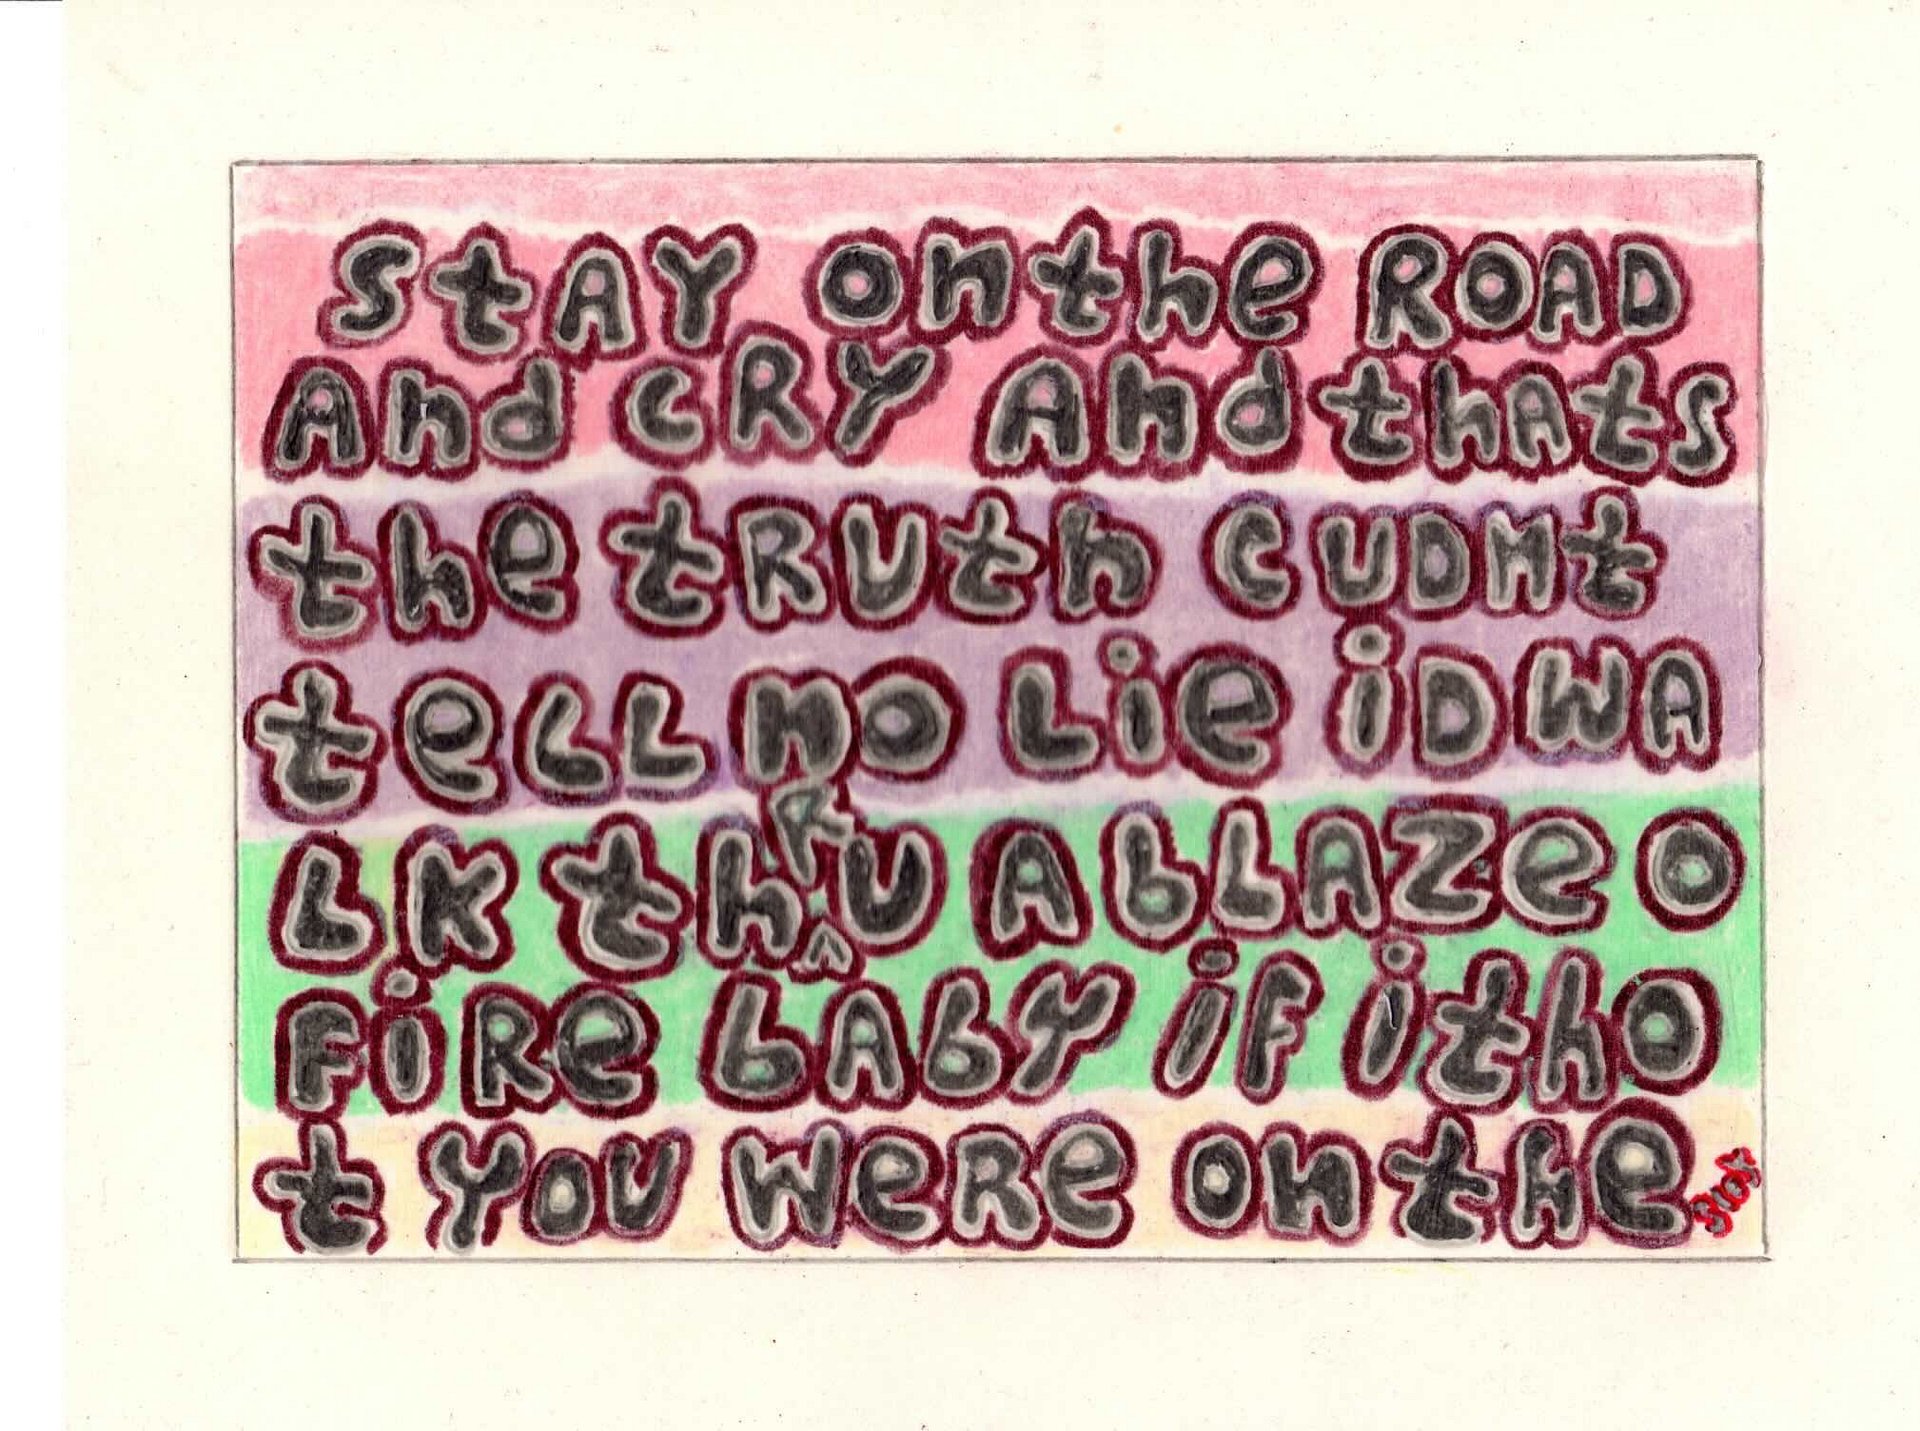 StAY onthe ROAD
And CRY And thAts
the tRUth CUDNt
teLL NO Lie iDWA
LK thRU A bLAZe O
FiRe bAbY iF i tho
t YOU WeRe on the